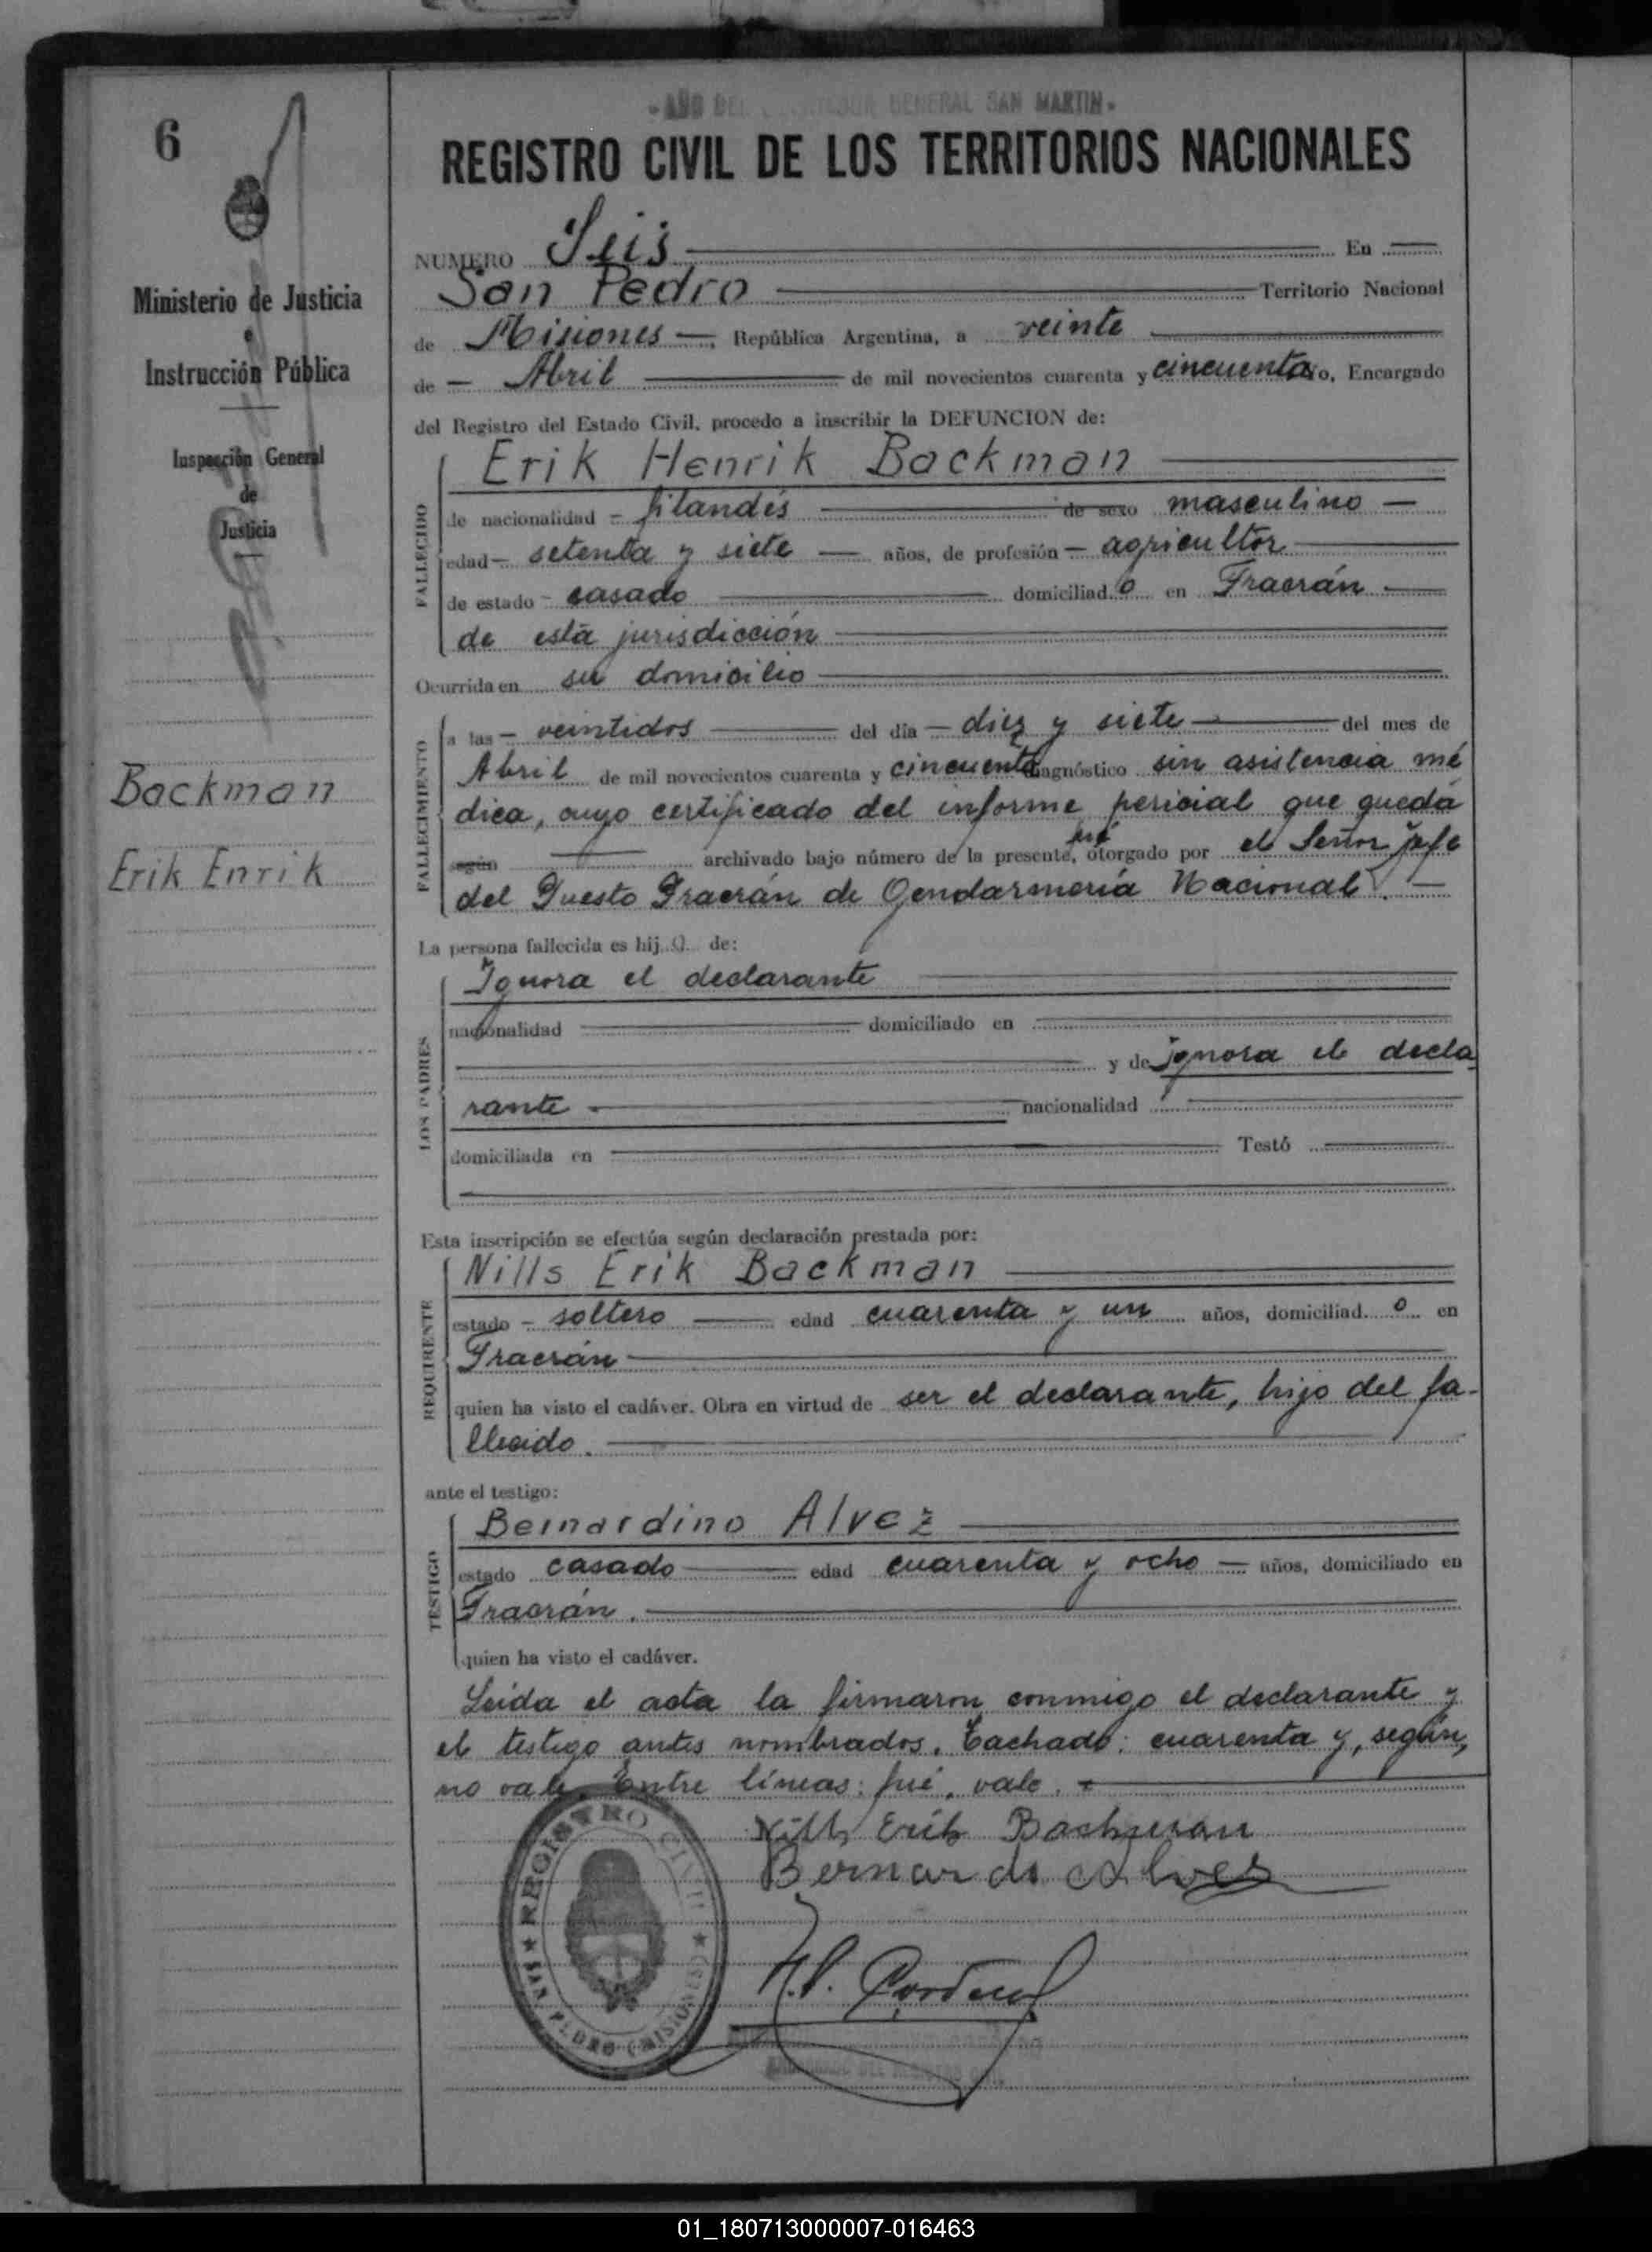 6
- AÑO DEL LIBERTADOR GENERAL SAN MARTIN -
REGISTRO CIVIL DE LOS TERRITORIOS NACIONALES
Ministerio de Justicia
e
Instrucción Pública
Inspección General
de
Justicia
Backman
Erik Enrik
NUMERO Seis En
San Pedro Territorio Nacional
de Misiones —, República Argentina, a veinte
de — Abril de mil novecientos cuarenta y cincuenta yo, Encargado
del Registro del Estado Civil, procedo a inscribir la DEFUNCION de:
Erik Henrik Backman
FALLECIDO
de nacionalidad - filandés de sexo masculino —
edad - setenta y siete — años, de profesión - agricultor
de estado - casado domiciliad o en Fracrán
de esta jurisdicción
Ocurrida en su domicilio
FALLECIMIENTO
a las - veintidos del día - diez y siete del mes de
Abril de mil novecientos cuarenta y cincuenta diagnóstico sin asistencia mé
dica, cuyo certificado del informe pericial que queda
fué
según archivado bajo número de la presente, otorgado por el Señor jefe
del Puesto Fracrán de Gendarmería Nacional. —
La persona fallecida es hij o de:
Ignora el declarante
LOS PADRES
nacionalidad domiciliado en
y de ignora el decla
rante - nacionalidad
domiciliada en Testó
Esta inscripción se efectúa según declaración prestada por:
Nills Erik Backman
REQUIRENTE
estado - soltero edad cuarenta y un años, domiciliad o en
Fracrán
quien ha visto el cadáver. Obra en virtud de ser el declarante, hijo del fa-
llecido.
ante el testigo:
Bernardino Alvez
TESTIGO
estado casado edad cuarenta y ocho — años, domiciliado en
Fracrán.
quien ha visto el cadáver.
Leída el acta la firmaron conmigo el declarante y
el testigo antes nombrados. Tachado: cuarenta y, según,
no vale. Entre líneas: fué, vale. -
Nills Erik Backman
Bernardo Alves
REGISTRO CIVIL
SAN PEDRO (MISIONES)
01_180713000007-016463